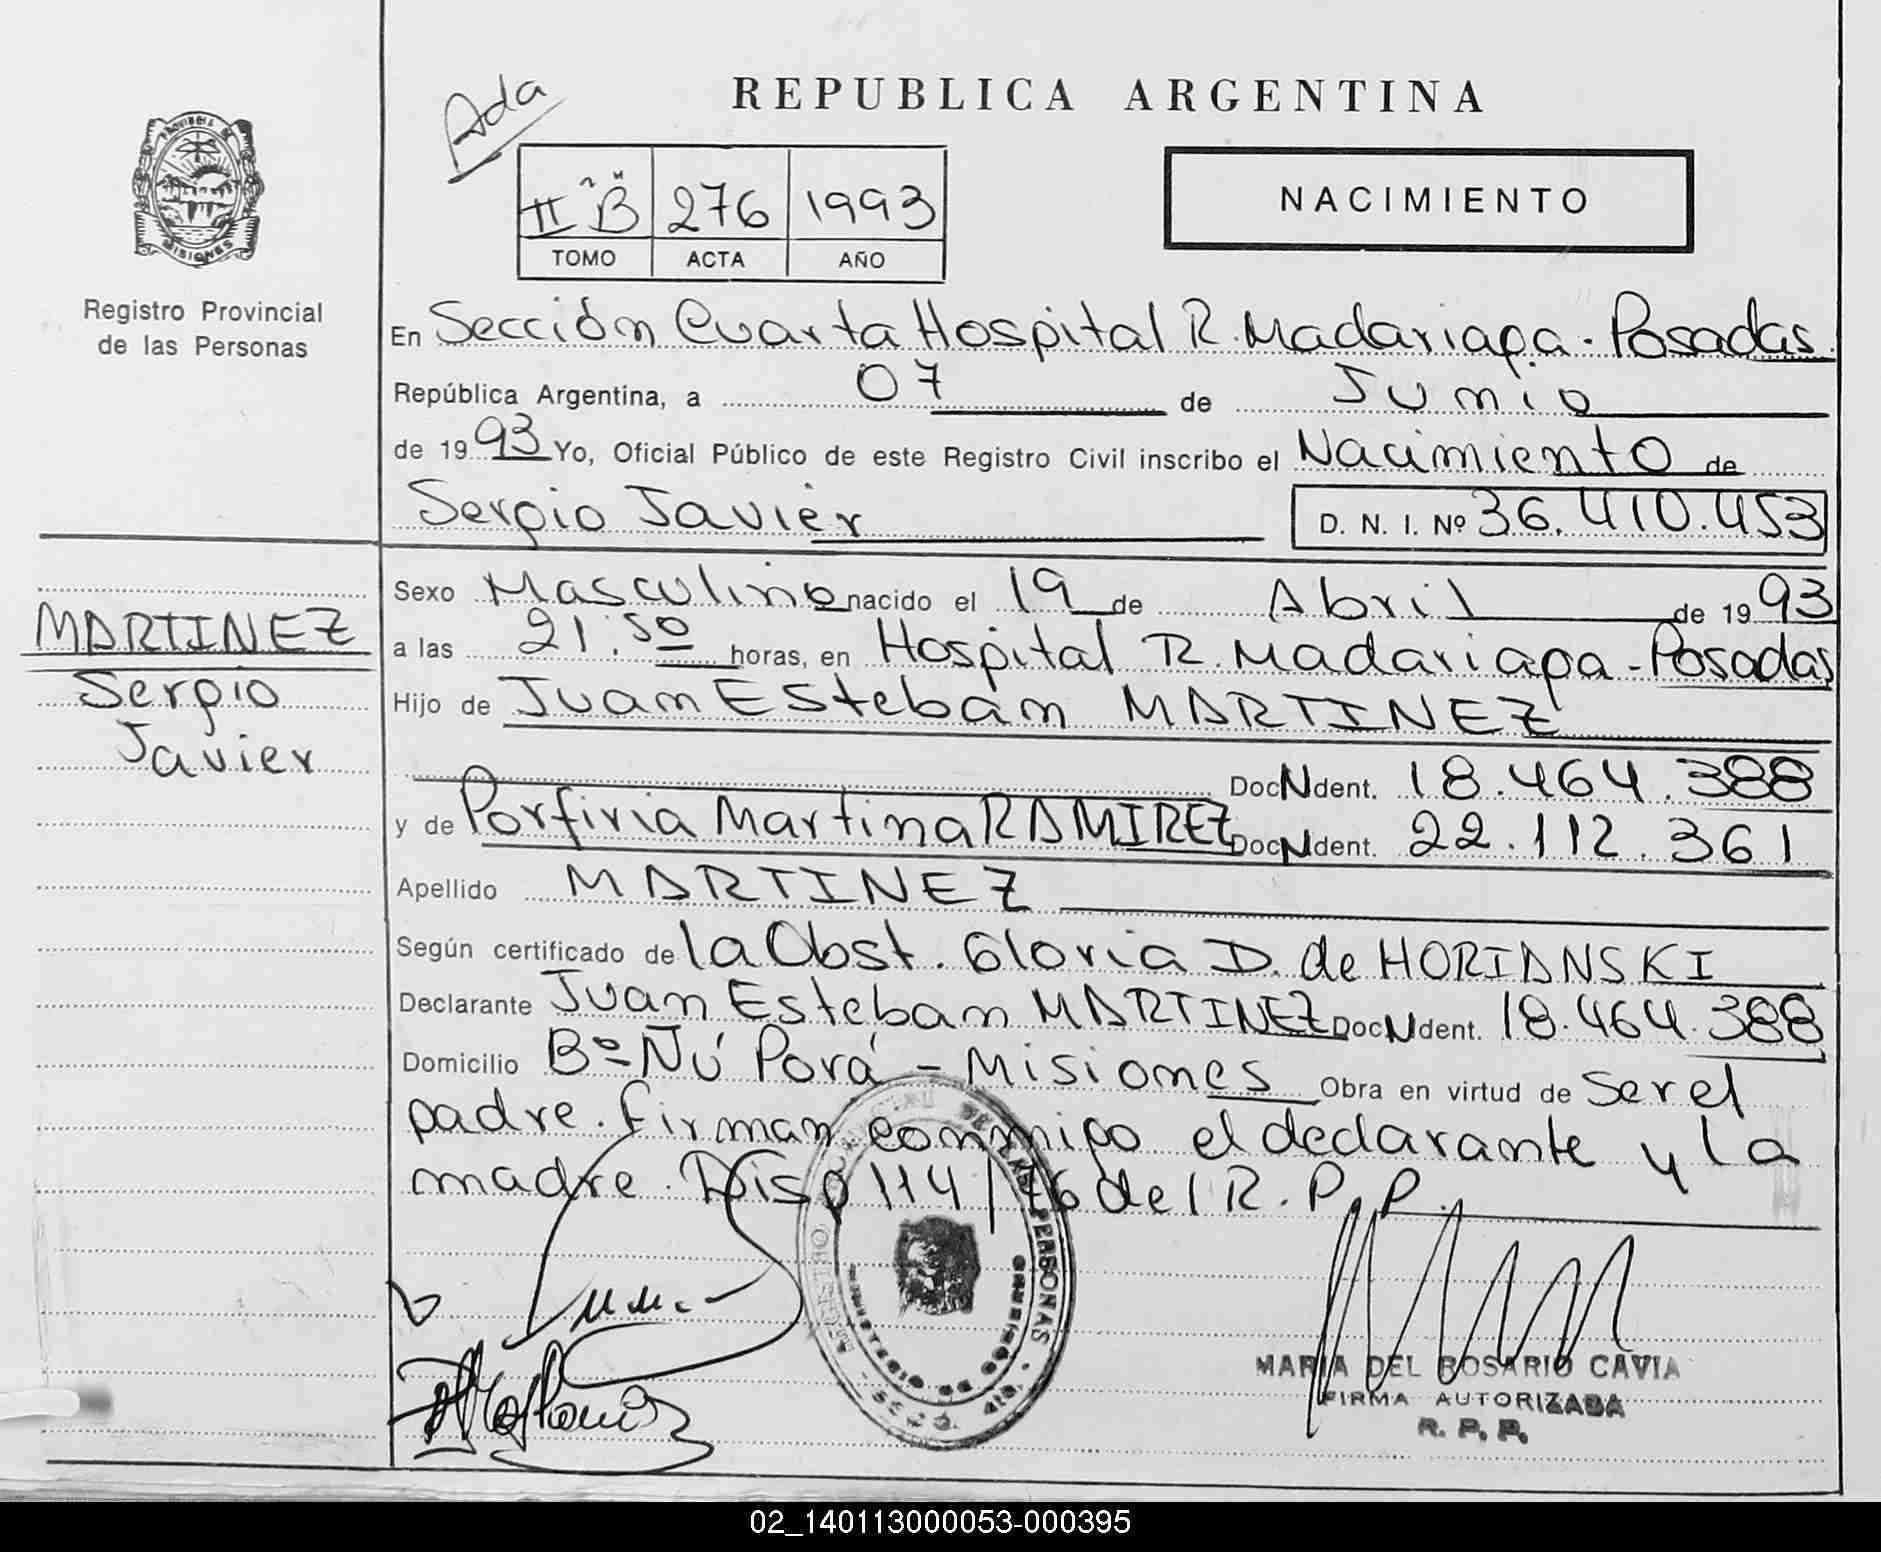 Ada
REPUBLICA ARGENTINA
PROVINCIA DE
MISIONES
Registro Provincial
de las Personas
II "B" 276 1993
TOMO ACTA AÑO
NACIMIENTO
En Sección Cuarta Hospital R. Madariaga - Posadas
República Argentina, a 07 de Junio
de 1993 Yo, Oficial Público de este Registro Civil inscribo el Nacimiento de
Sergio Javier D. N. I. Nº 36.410.453
Sexo Masculino nacido el 19 de Abril de 1993
MARTINEZ
Sergio
Javier
a las 21:50 horas, en Hospital R. Madariaga - Posadas
Hijo de Juan Esteban MARTINEZ
Doc N Ident. 18.464.388
y de Porfiria Martina RAMIREZ Doc N Ident. 22.112.361
Apellido MARTINEZ
Según certificado de la Obst. Gloria D. de HORIANSKI
Declarante Juan Esteban MARTINEZ Doc N Ident. 18.464.388
Domicilio Bº Ñú Porá - Misiones Obra en virtud de Ser el
padre. Firman conmigo el declarante y la
madre. Disp 114/76 del R. P. P.
REGISTRO PROVINCIAL DE LAS PERSONAS
MINISTERIO DE GOBIERNO
MARIA DEL ROSARIO CAVIA
FIRMA AUTORIZADA
R. P. P.
02_140113000053-000395